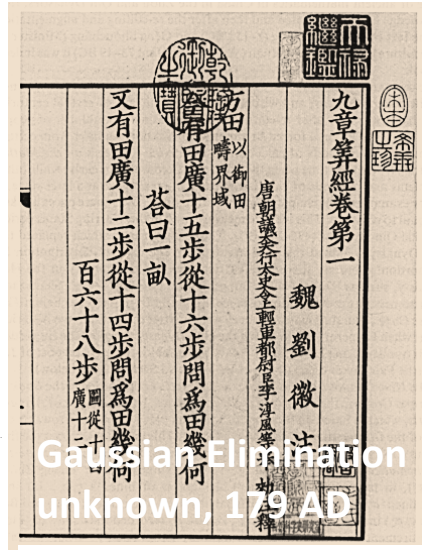 天祿繼鑑
乾隆御覽之寶
九章筭經卷第一
魏劉徽注
唐朝議大夫行太史令上輕車都尉臣李淳風等奉 勑注釋
方田以御田
疇界域
今有田廣十五步從十六步問爲田幾何
荅曰一畝
又有田廣十二步從十四步問爲田幾何
百六十八步圖從十四
廣十二
Gaussian Elimination
unknown, 179 AD